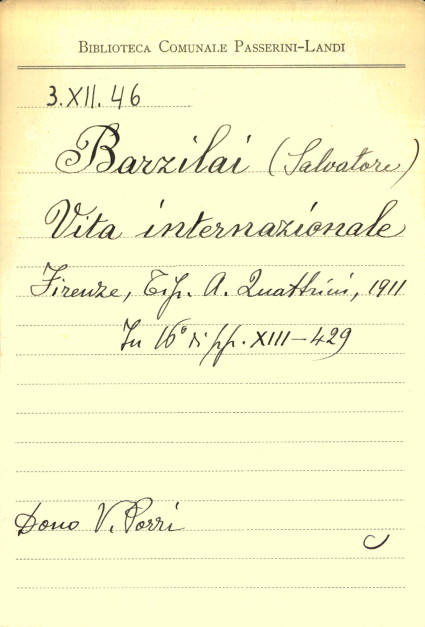 BIBLIOTECA COMUNALE PASSERINI-LANDI
3.XII.46
Barzilai (Salvatore)
Vita internazionale
Firenze, Tip. A. Quattrini, 1911
In 16° di pp. XIII-429
Dono V. Porri